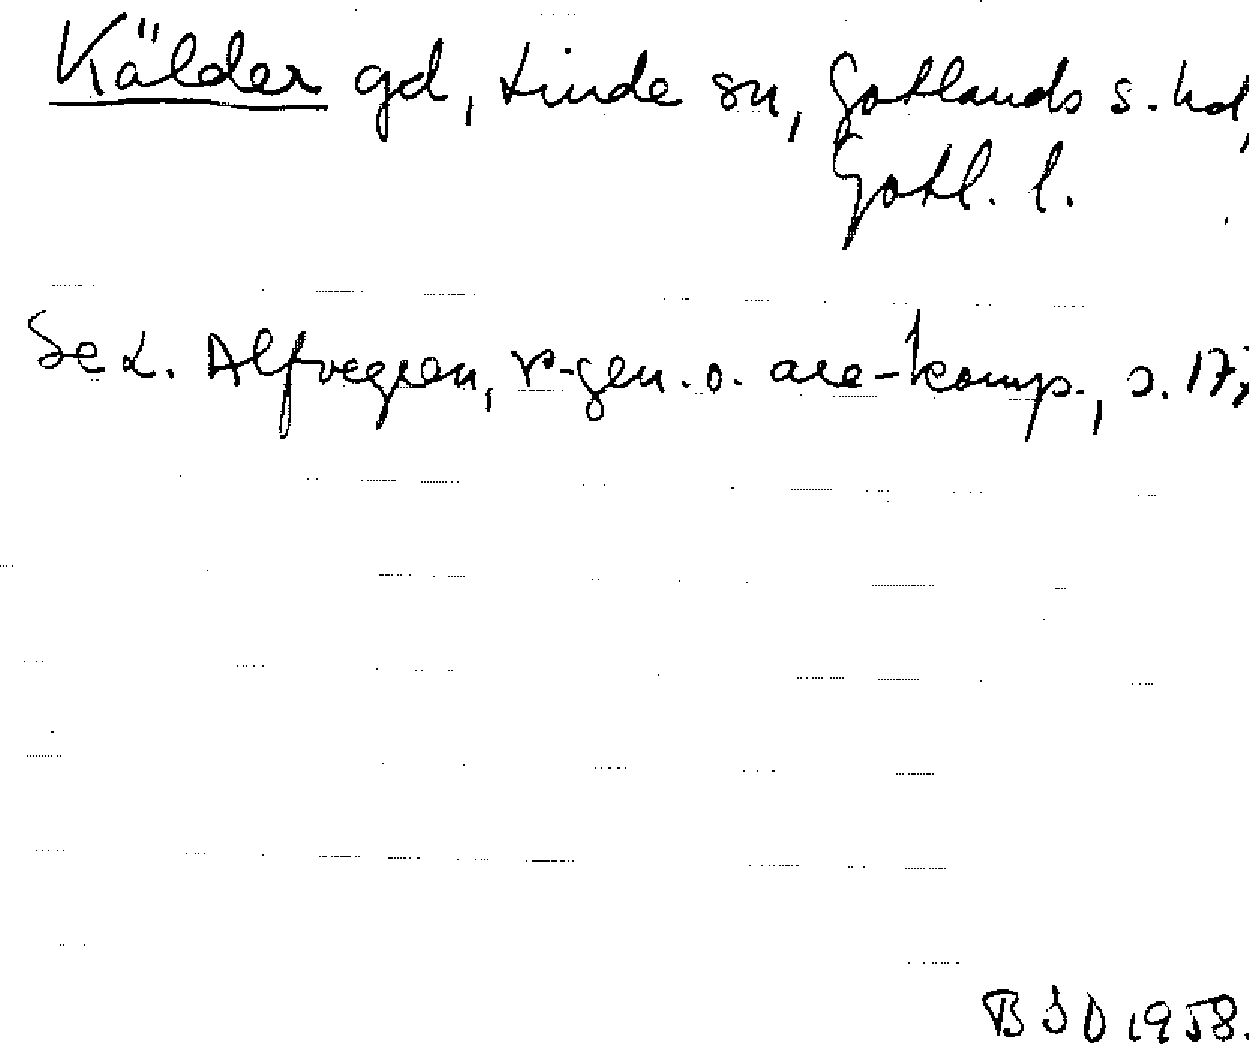 Kälder gd, Linde sn, Gotlands s. hd,
Gotl. l.
Se L. Alfvegren, r-gen. o. are-komp., s. 17;
BSD 1958.